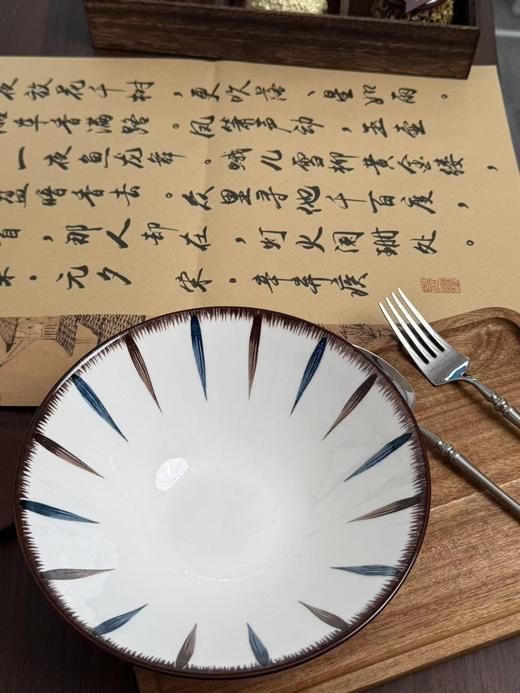 夜放花千树,更吹落、星如雨。
车香满路。凤箫声动,玉壶
一夜鱼龙舞。蛾儿雪柳黄金缕,
盈暗香去。众里寻他千百度,
首,那人却在,灯火阑珊处。
·元夕 宋·辛弃疾